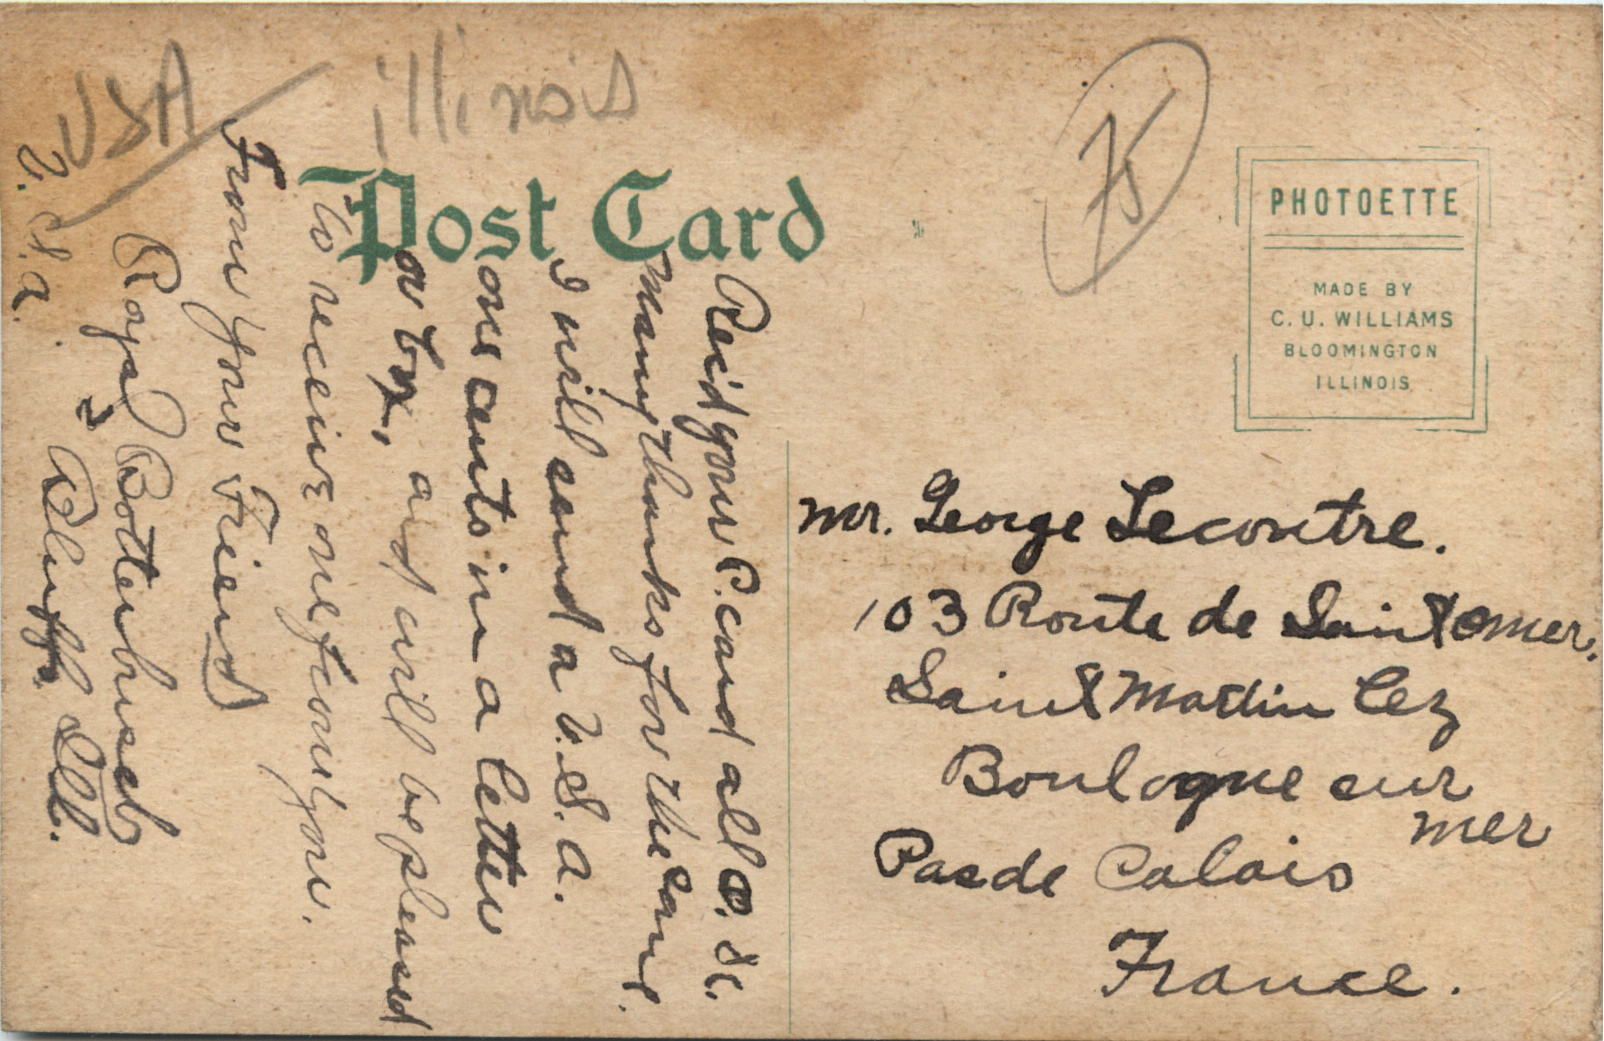 USA
illinois
75
Post Card
PHOTOETTE
MADE BY
C. U. WILLIAMS
BLOOMINGTON
ILLINOIS
Rec'd your P. card all O.K.
Many thanks for the same.
I will send a U.S.A.
one cents in a letter
or box, and will be pleased
to receive one from you.
From your Friend
Royal Bottenbusch
= Bluffs. Ill.
U.S.A.
Mr. George Lecoutre.
103 Route de Saint Omer.
Saint Martin lez
Boulogne sur
mer
Pas de Calais
France.